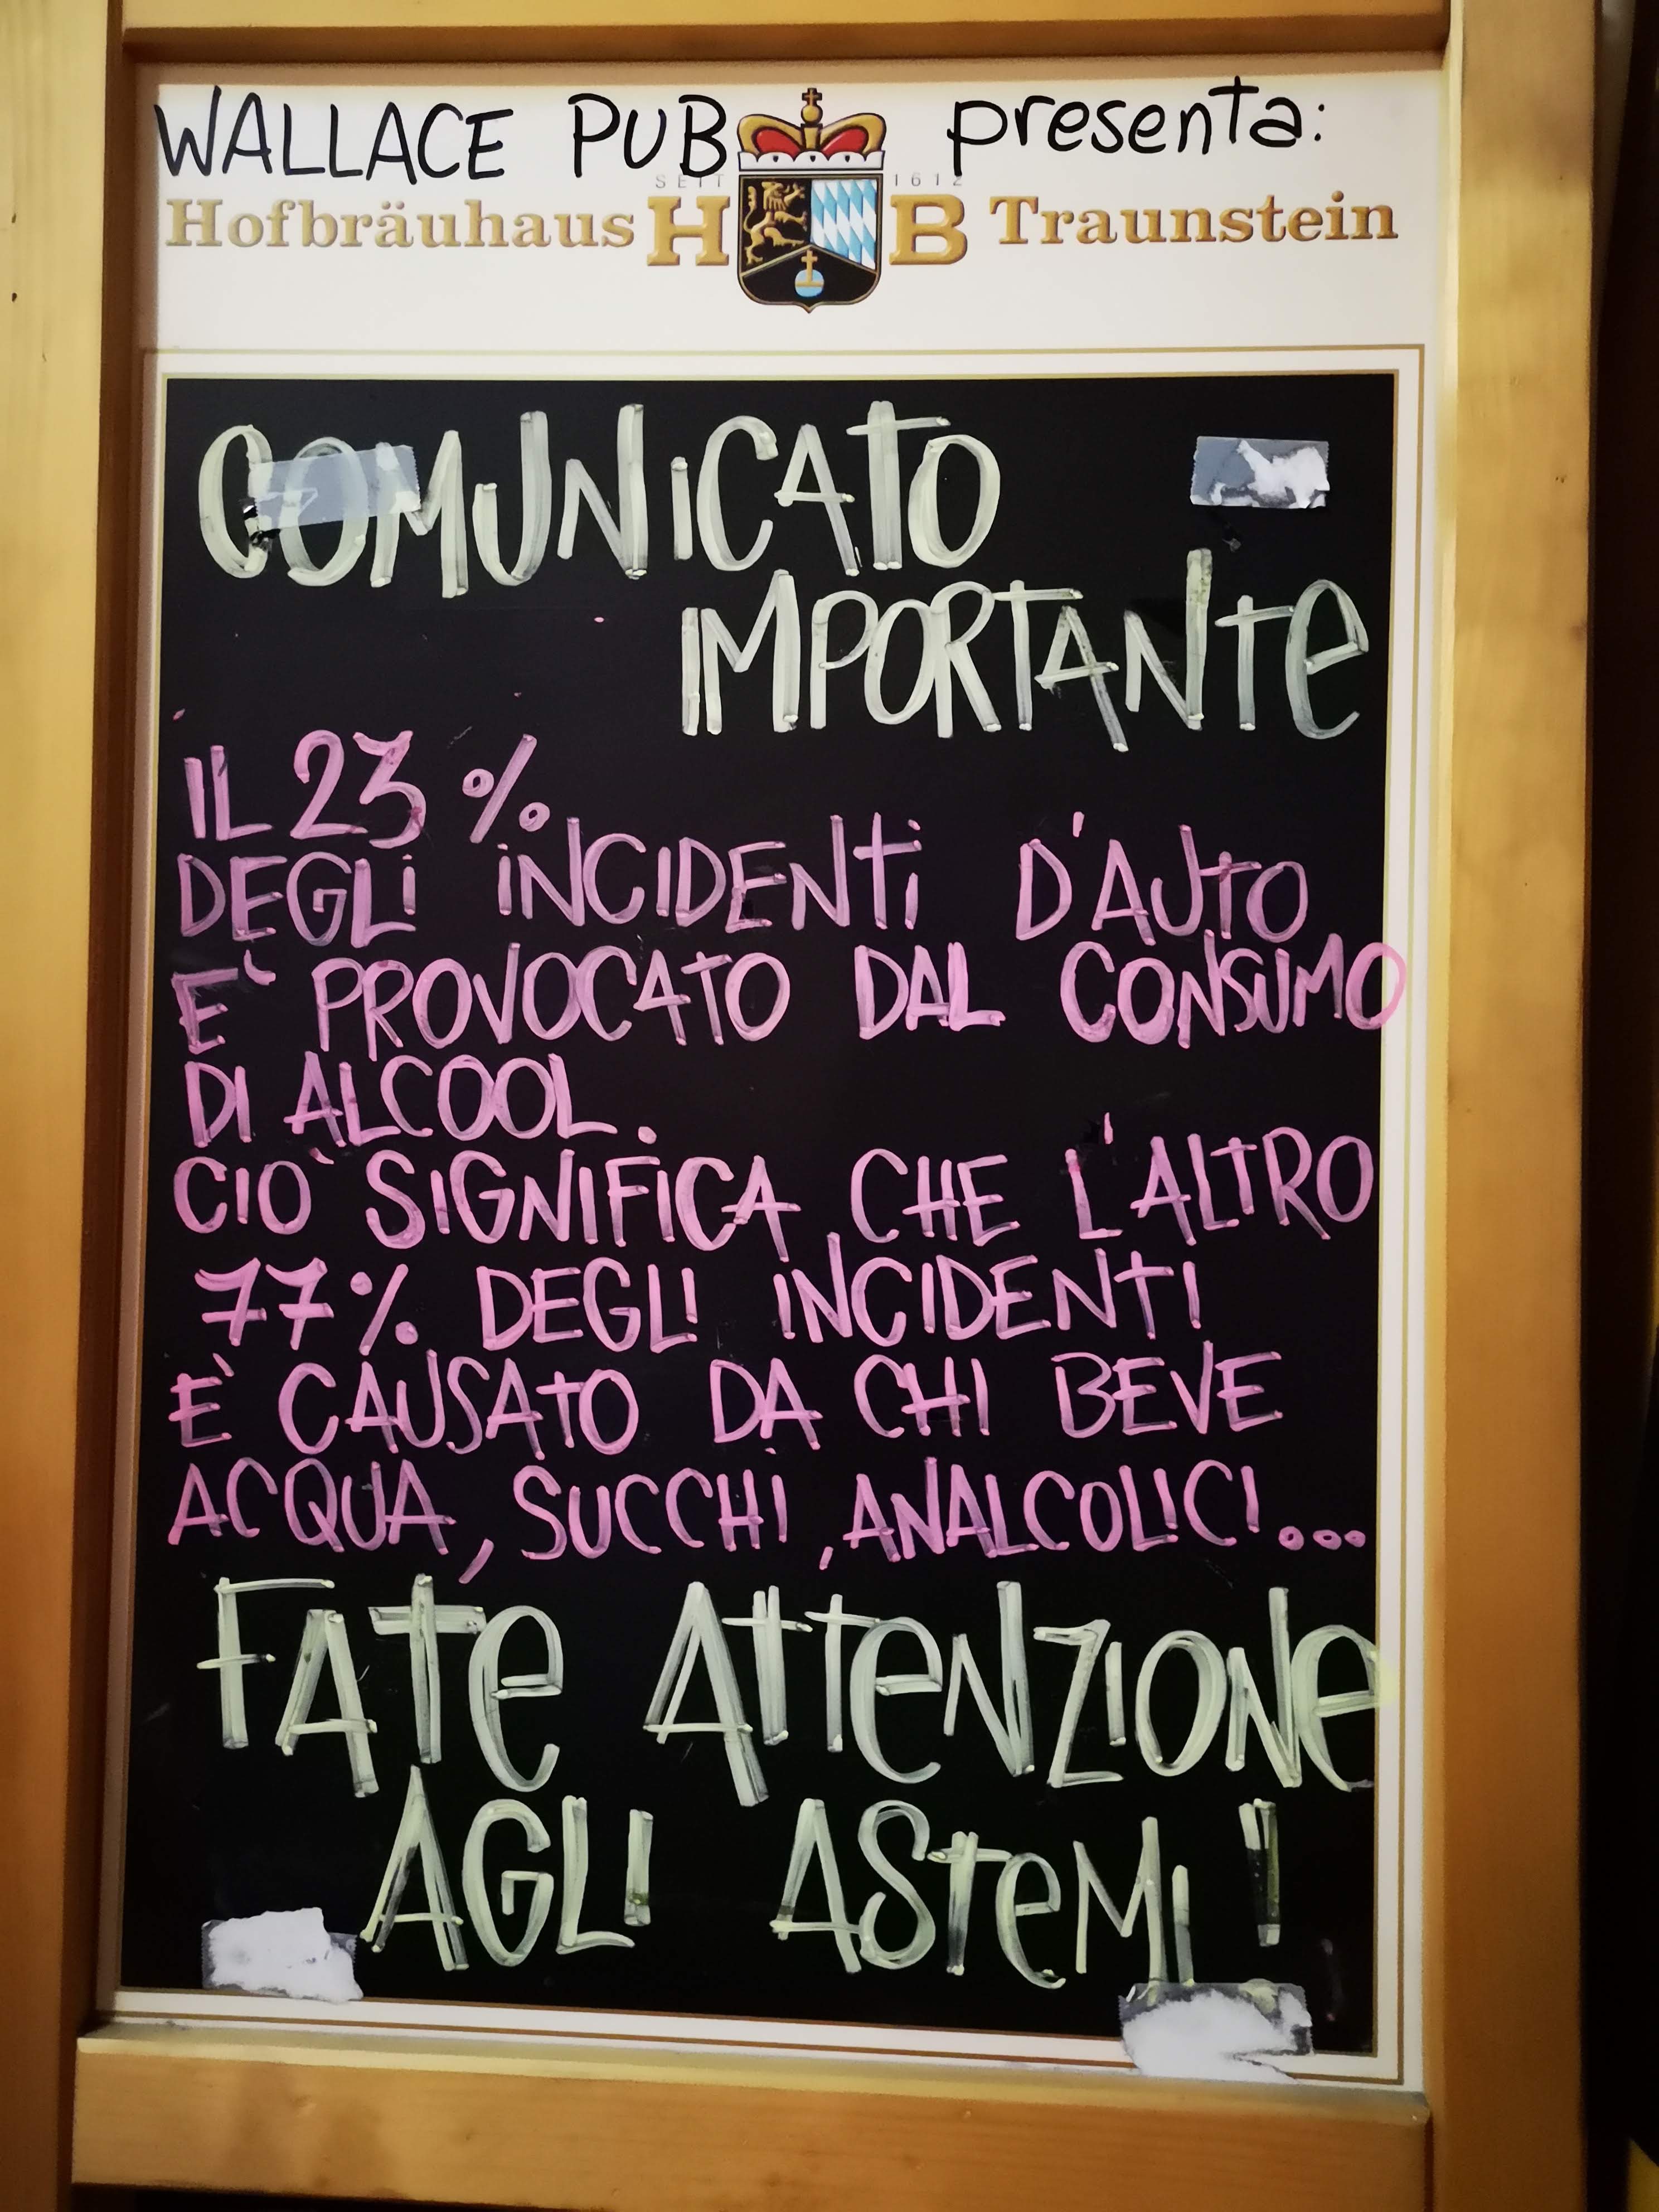 WALLACE PUB presenta:
SEIT 1612
Hofbräuhaus HB Traunstein
COMUNiCATO
IMPORTANTe
IL 23 %
DEGLi iNCIDENTi D'AUtO
E` PROVOCATO DAL CONSUMO
DI ALCOOL.
CIO` SIGNIFICA CHE L'ALTRO
77% DEGLI INCIDENTI
E` CAUSATO DA CHI BEVE
ACQUA, SUCCHI, ANALCOLICI...
FATe AttenZIONe
AGLI ASteMI!